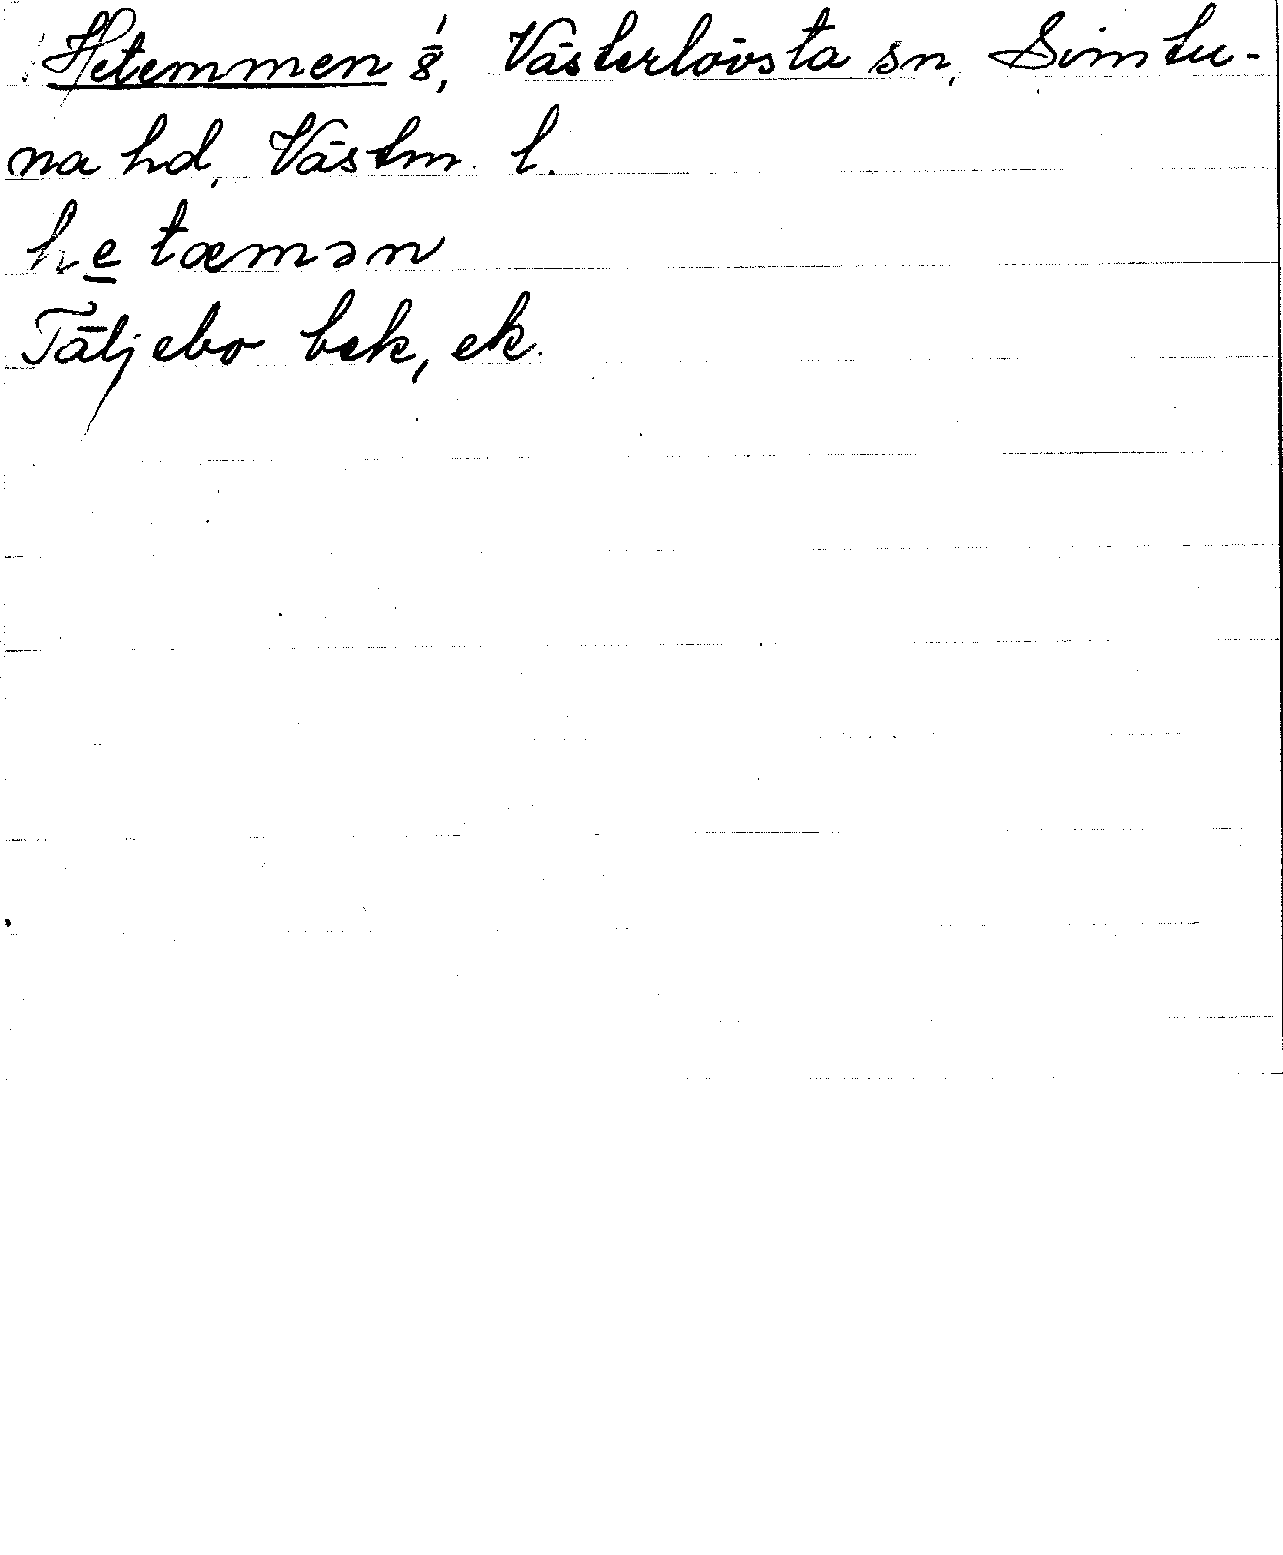 Hetemmen 1/8, Västerlövsta sn, Simtu-
na hd, Västm. l.
hetæmən
Täljebo bek, ek.